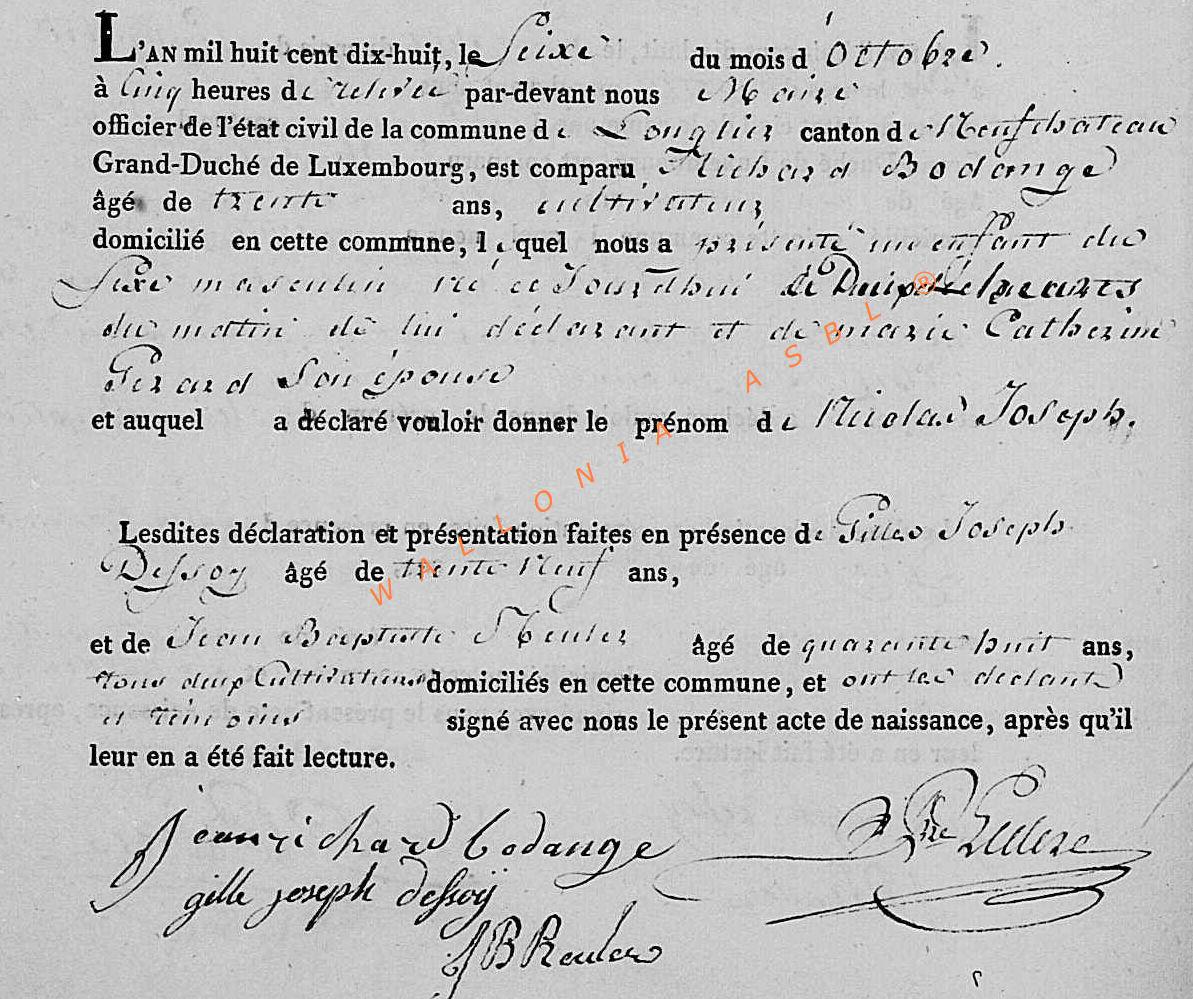 L'AN mil huit cent dix-huit, le Seixe du mois d'Octobre.
à Cinq heures de relevée par-devant nous Maire
officier de l'état civil de la commune de Longlier canton de Neufchateau
Grand-Duché de Luxembourg, est comparu Richard Bodange
âgé de trente ans, cultivateur
domicilié en cette commune, lequel nous a présenté un enfant du
Sexe masculin né ce Jourdhui à heures
du matin de lui déclarant et de marie Catherine
Gerard Son épouse
et auquel a déclaré vouloir donner le prénom de Nicolas Joseph.
Lesdites déclaration et présentation faites en présence de Gilles Joseph
Dessoy âgé de trente Neuf ans,
et de Jean Baptiste âgé de quarante huit ans,
tous deux Cultivateurs domiciliés en cette commune, et ont les
et temoins signé avec nous le présent acte de naissance, après qu'il
leur en a été fait lecture.
jean richard bodange
gille joseph dessoÿ
JB
WALLONIA ASBL ®